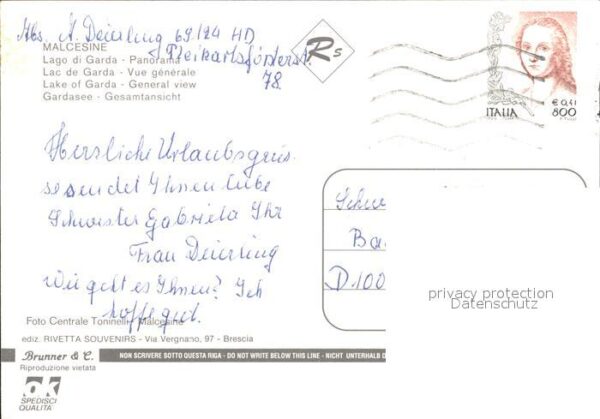 Abs. A. Deierling 69124 HD
Pleikartsförsterstr.
78.
MALCESINE
Lago di Garda - Panorama
Lac de Garda - Vue générale
Lake of Garda - General view
Gardasee - Gesamtansicht
Rs
ITALIA
€ 0,41
800
Herzliche Urlaubsgrüs
se sendet Ihnen liebe
Schwester Gabriela Ihr
Frau Deierling
Wie geht es Ihnen? Ich
hoffe gut.
Schwe
Ba
D.100
privacy protection
Datenschutz
Foto Centrale Toninelli - Malcesine
ediz. RIVETTA SOUVENIRS - Via Vergnano, 97 - Brescia
Brunner & C.
NON SCRIVERE SOTTO QUESTA RIGA - DO NOT WRITE BELOW THIS LINE - NICHT UNTERHALB D
Riproduzione vietata
ok
SPEDISCI
QUALITÀ